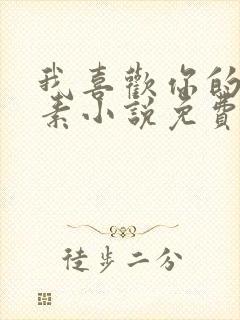 我喜歡你的
素小說免費
徒步二分